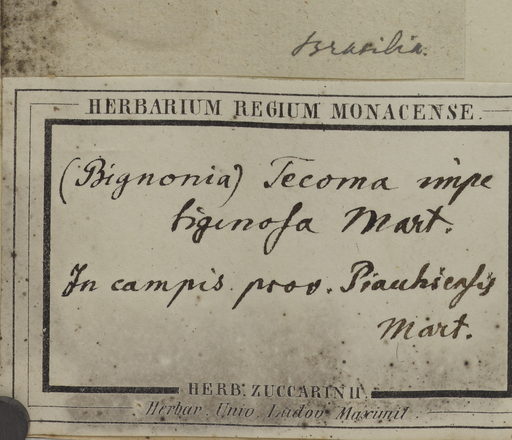 Brasilia.
HERBARIUM REGIUM MONACENSE.
(Bignonia) Tecoma impe
tiginosa Mart.
In campis prov. Piauhiensis
Mart.
HERB. ZUCCARINII.
Herbar. Univ. Ludov. Maximil.